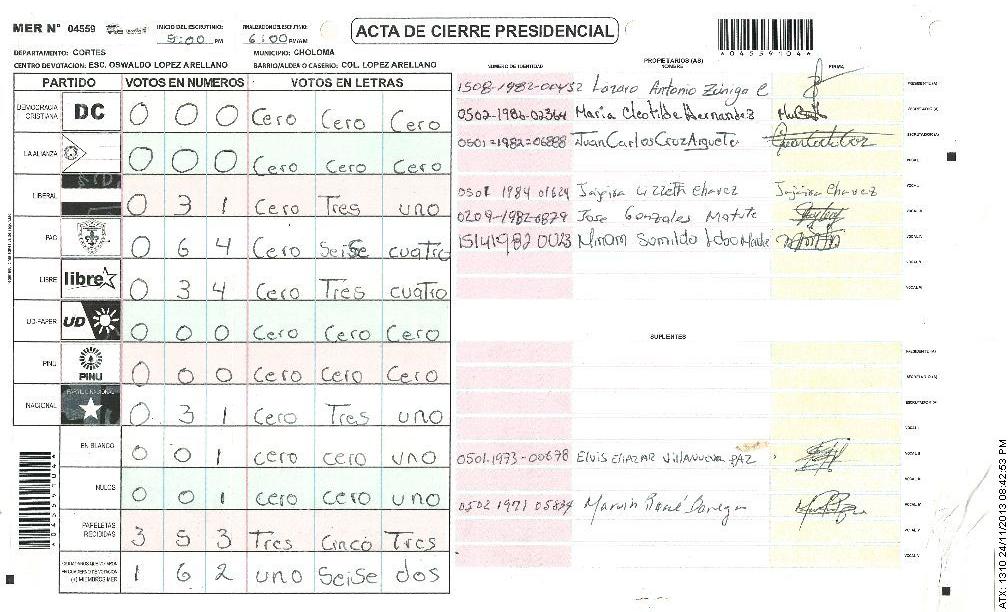 MER N° 04559 INICIO DEL ESCRUTINIO: 5:00 PM FINALIZACION DEL ESCRUTINIO: 6:00 PM/AM
ACTA DE CIERRE PRESIDENCIAL
DEPARTAMENTO: CORTES MUNICIPIO: CHOLOMA
CENTRO DE VOTACION: ESC. OSWALDO LOPEZ ARELLANO BARRIO/ALDEA O CASERIO: COL. LOPEZ ARELLANO
PARTIDO VOTOS EN NUMEROS VOTOS EN LETRAS
DEMOCRACIA CRISTIANA DC 0 0 0 Cero Cero Cero
LA ALIANZA 0 0 0 Cero Cero Cero
LIBERAL 0 3 1 Cero Tres uno
PAC 0 6 4 Cero Seise cuatro
LIBRE libre 0 3 4 Cero Tres cuatro
UD-FAPER UD 0 0 0 Cero Cero Cero
PINU PINU 0 0 0 Cero Cero Cero
NACIONAL 0 3 1 Cero Tres uno
EN BLANCO 0 0 1 cero cero uno
NULOS 0 0 1 cero cero uno
PAPELETAS RECIBIDAS 3 5 3 Tres Cinco Tres
(+) MIEMBROS MER 1 6 2 uno Seise dos
PROPIETARIOS (AS)
NUMERO DE IDENTIDAD NOMBRE FIRMA
1508-1982-00432 Lazaro Antonio Zuniga C PRESIDENTE (A)
0502-1986-02364 Maria Cleotilde Hernandez SECRETARIO (A)
0501-1982-06888 Juan Carlos Cruz Argueta ESCRUTADOR (A)
VOCAL I
0501 1984 01624 Lizzeth Chavez Chavez VOCAL II
0209-1982-0879 Jose Gonzales Matute VOCAL III
15141982 0023 Miriam Lobo VOCAL IV
VOCAL V
SUPLENTES
PRESIDENTE (A)
SECRETARIO (A)
ESCRUTADOR (A)
VOCAL I
0501-1973-00678 Elvis Eliazar Villanueva PAZ VOCAL II
VOCAL III
0502 1971 05834 Marvin René VOCAL IV
VOCAL V
04559104
ATX: 1310 24/11/2013 08:42:53 PM